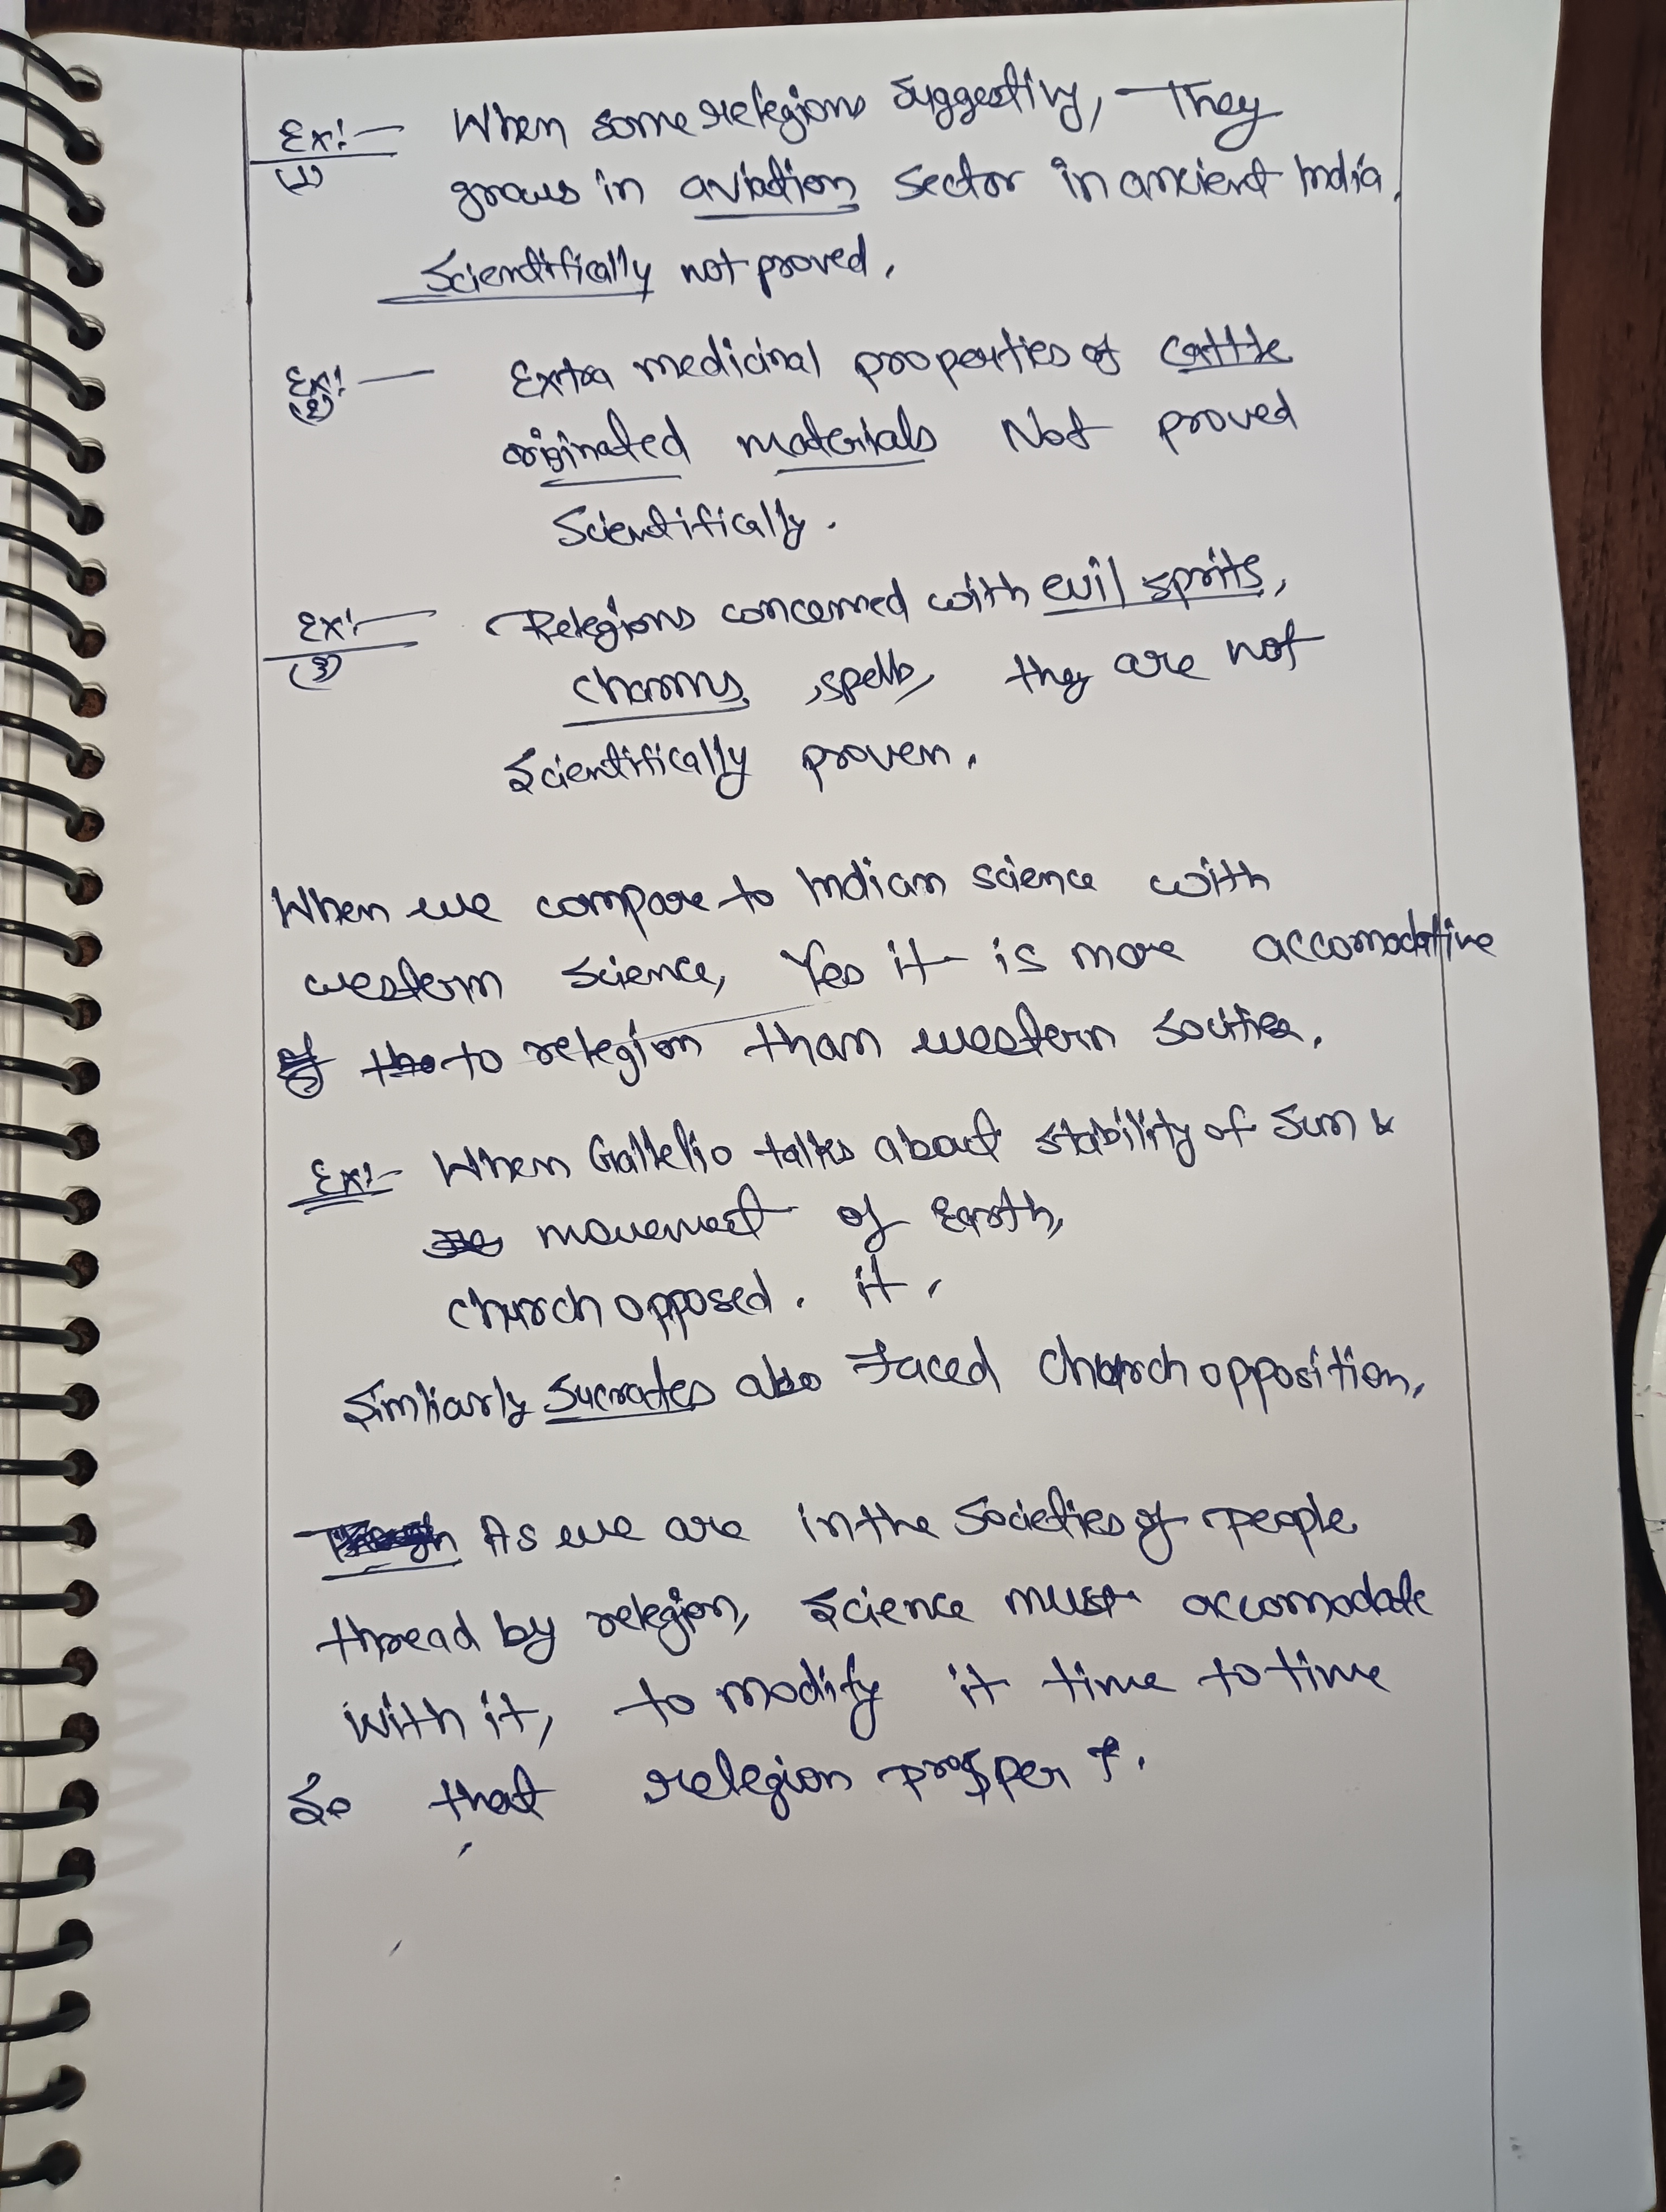 Ex:- When some relegions suggesting, They
(1)
grows in aviation sector in ancient India,
Scientifically not proved.
Ex:- Extra medicinal properties of cattle
(2)
originated materials Not proved
Scientifically.
Ex:- Relegions concerned with evil sprits,
(3)
charms, spells, they are not
Scientifically proven.
When we compare to Indian science with
western science, Yes it is more accomodative
to relegion than western socities.
Ex:- When Gallelio talks about stability of Sun &
movement of Earth,
church opposed. it.
Similiarly Sucrates also faced church opposition.
As we are in the societies of people
thread by relegion, science must accomodate
with it, to modify it time to time
So that relegion prosper